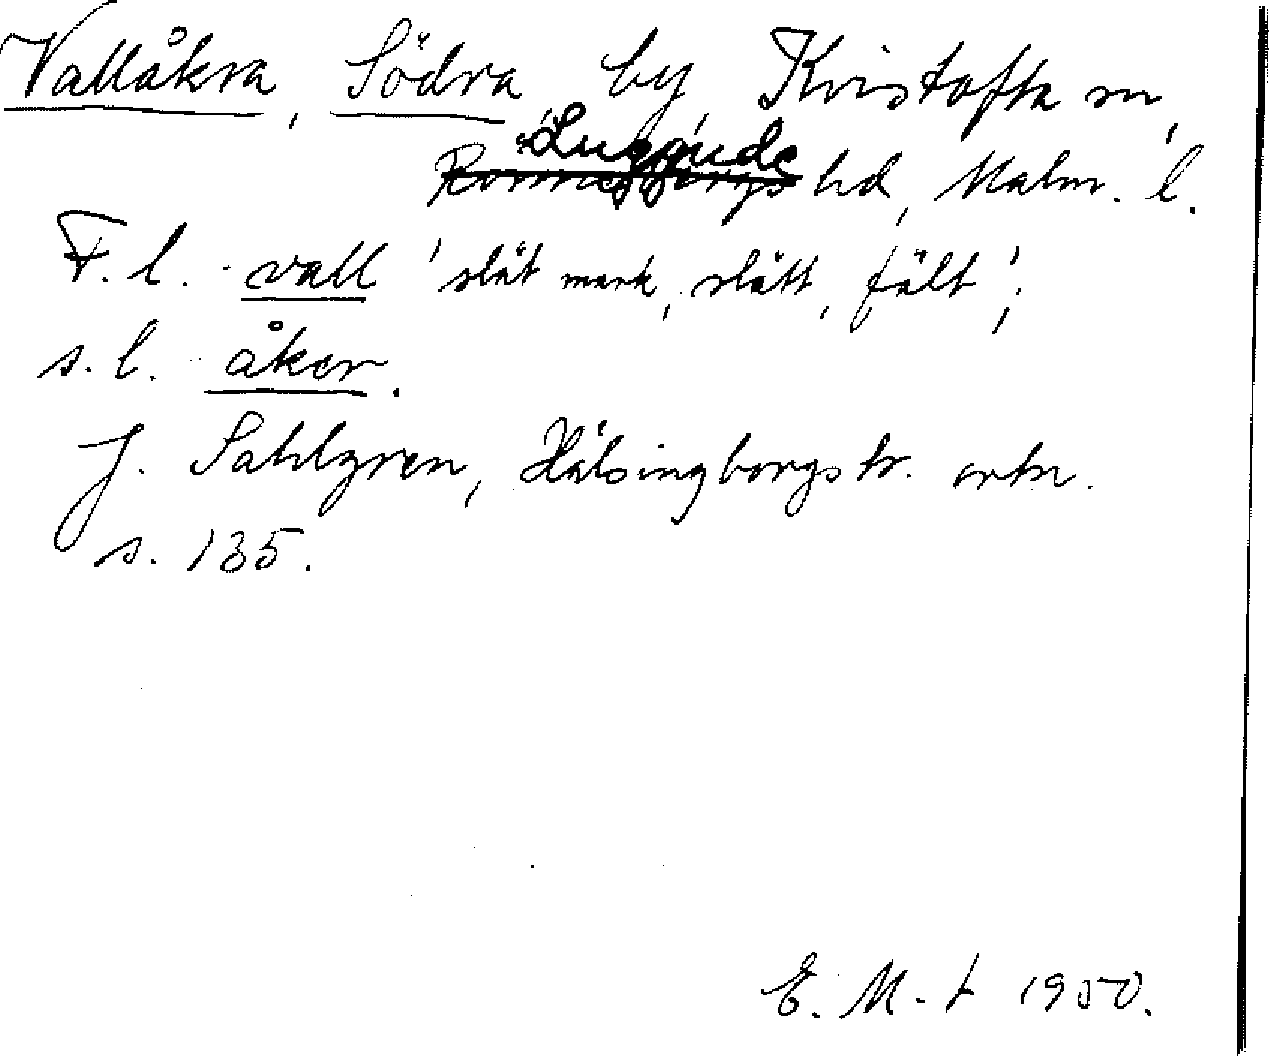 Vallåkra, Södra by, Kvistofta sn,
Luggude
Rönnebergs hd, Malm. l.
F. l. vall 'slät mark, slätt, fält';
s. l. åker.
J. Sahlgren, Hälsingborgstr. ortn.
s. 135.
E. M-t 1950.